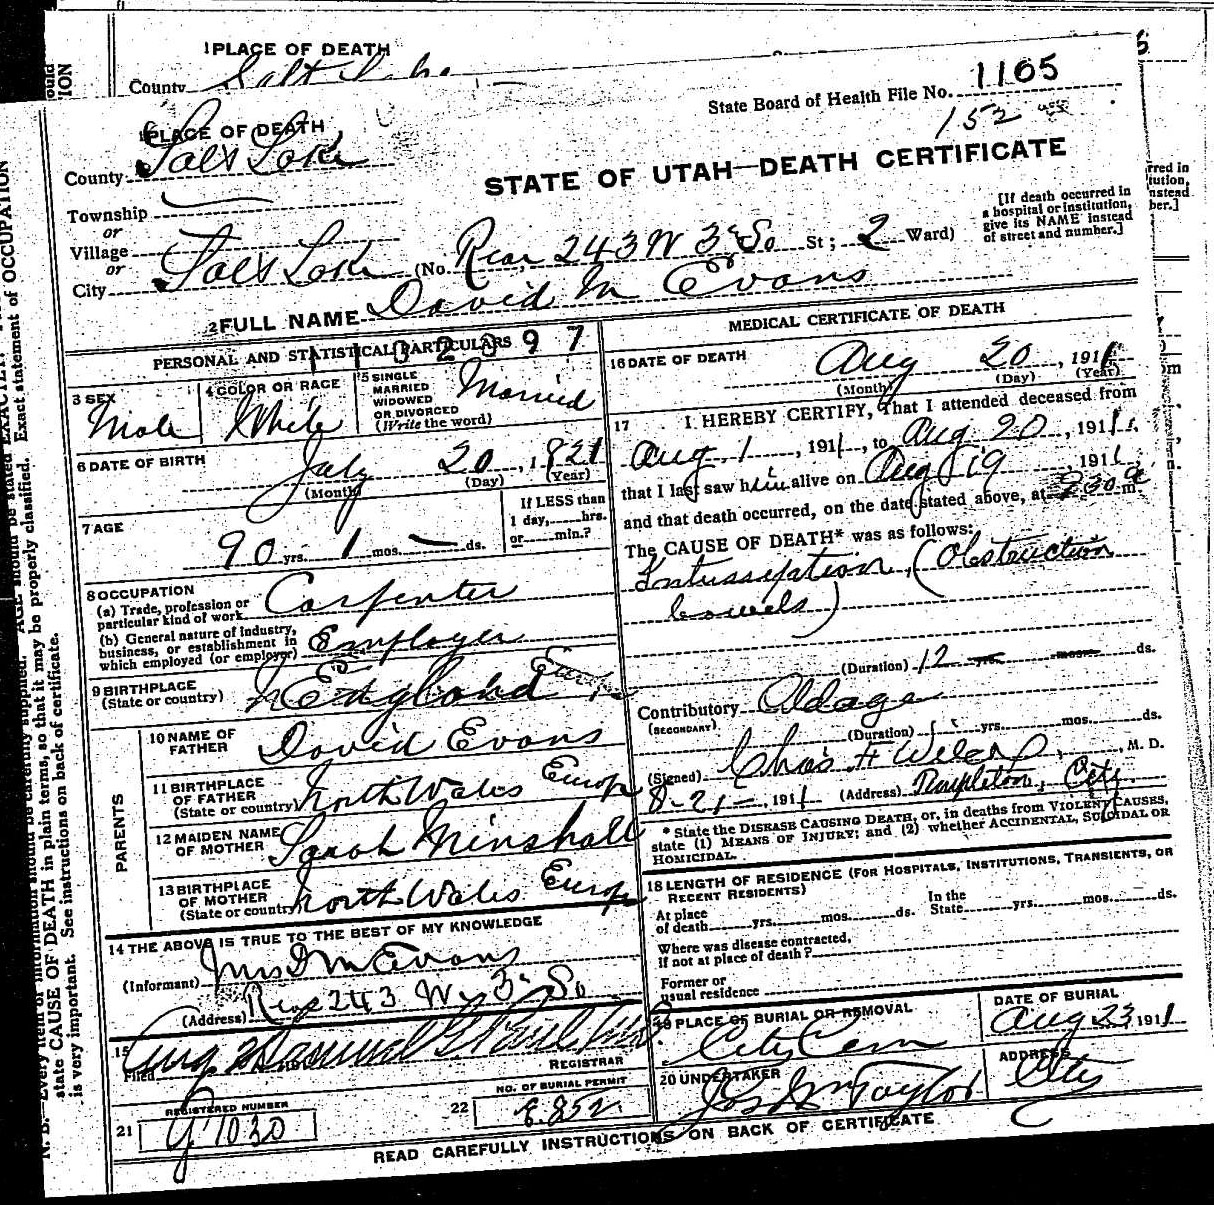 1 PLACE OF DEATH
County Salt Lake
1105
State Board of Health File No.
152
1 PLACE OF DEATH
County Salt Lake
STATE OF UTAH—DEATH CERTIFICATE
Township
or
Village
or
City Salt Lake (No. Rear 243 W 3d So St; 2 Ward)
[If death occurred in a hospital or institution, give its NAME instead of street and number.]
2 FULL NAME David M Evans
PERSONAL AND STATISTICAL PARTICULARS
MEDICAL CERTIFICATE OF DEATH
3 SEX
Male
4 COLOR OR RACE
White
5 SINGLE
MARRIED
WIDOWED
OR DIVORCED
(Write the word)
Married
6 DATE OF BIRTH
July 20, 1821
(Month) (Day) (Year)
7 AGE
90 yrs. 1 mos. — ds.
If LESS than
1 day, hrs.
or min.?
8 OCCUPATION
(a) Trade, profession or
particular kind of work
Carpenter
(b) General nature of industry,
business, or establishment in
which employed (or employer)
Employer
9 BIRTHPLACE
(State or country)
England Europe
PARENTS
10 NAME OF
FATHER
David Evans
11 BIRTHPLACE
OF FATHER
(State or country)
North Wales Europe
12 MAIDEN NAME
OF MOTHER
Sarah Minshall
13 BIRTHPLACE
OF MOTHER
(State or country)
North Wales Europe
14 THE ABOVE IS TRUE TO THE BEST OF MY KNOWLEDGE
(Informant) Mrs D M Evans
(Address) Rear 243 W 3d So
15
Filed Aug
REGISTRAR
21 REGISTERED NUMBER
G 1030
22 NO. OF BURIAL PERMIT
E.852.
16 DATE OF DEATH
Aug 20, 1911
(Month) (Day) (Year)
17 I HEREBY CERTIFY, That I attended deceased from
Aug. 1, 1911, to Aug 20, 1911.
that I last saw him alive on Aug 19 1911
and that death occurred, on the date stated above, at 230 a m.
The CAUSE OF DEATH* was as follows:
Intussuption, (Obstruction
bowels)
(Duration) 12 yrs. mos. ds.
Contributory Oldage
(SECONDARY)
(Duration) yrs. mos. ds.
(Signed) Chas F , M. D.
8-21-, 1911 (Address) Templeton, City
* State the DISEASE CAUSING DEATH, or, in deaths from VIOLENT CAUSES,
state (1) MEANS OF INJURY; and (2) whether ACCIDENTAL, SUICIDAL OR
HOMICIDAL.
18 LENGTH OF RESIDENCE (FOR HOSPITALS, INSTITUTIONS, TRANSIENTS, OR
RECENT RESIDENTS)
At place
of death yrs. mos. ds.
In the
State yrs. mos. ds.
Where was disease contracted,
if not at place of death?
Former or
usual residence
19 PLACE OF BURIAL OR REMOVAL
City Cem
DATE OF BURIAL
Aug 23, 1911
20 UNDERTAKER
Jos Wm Taylor
ADDRESS
City
READ CAREFULLY INSTRUCTIONS ON BACK OF CERTIFICATE
N. B.—Every item of information should be carefully supplied. AGE should be stated EXACTLY.
state CAUSE OF DEATH in plain terms, so that it may be properly classified. Exact statement of OCCUPATION
is very important. See instructions on back of certificate.